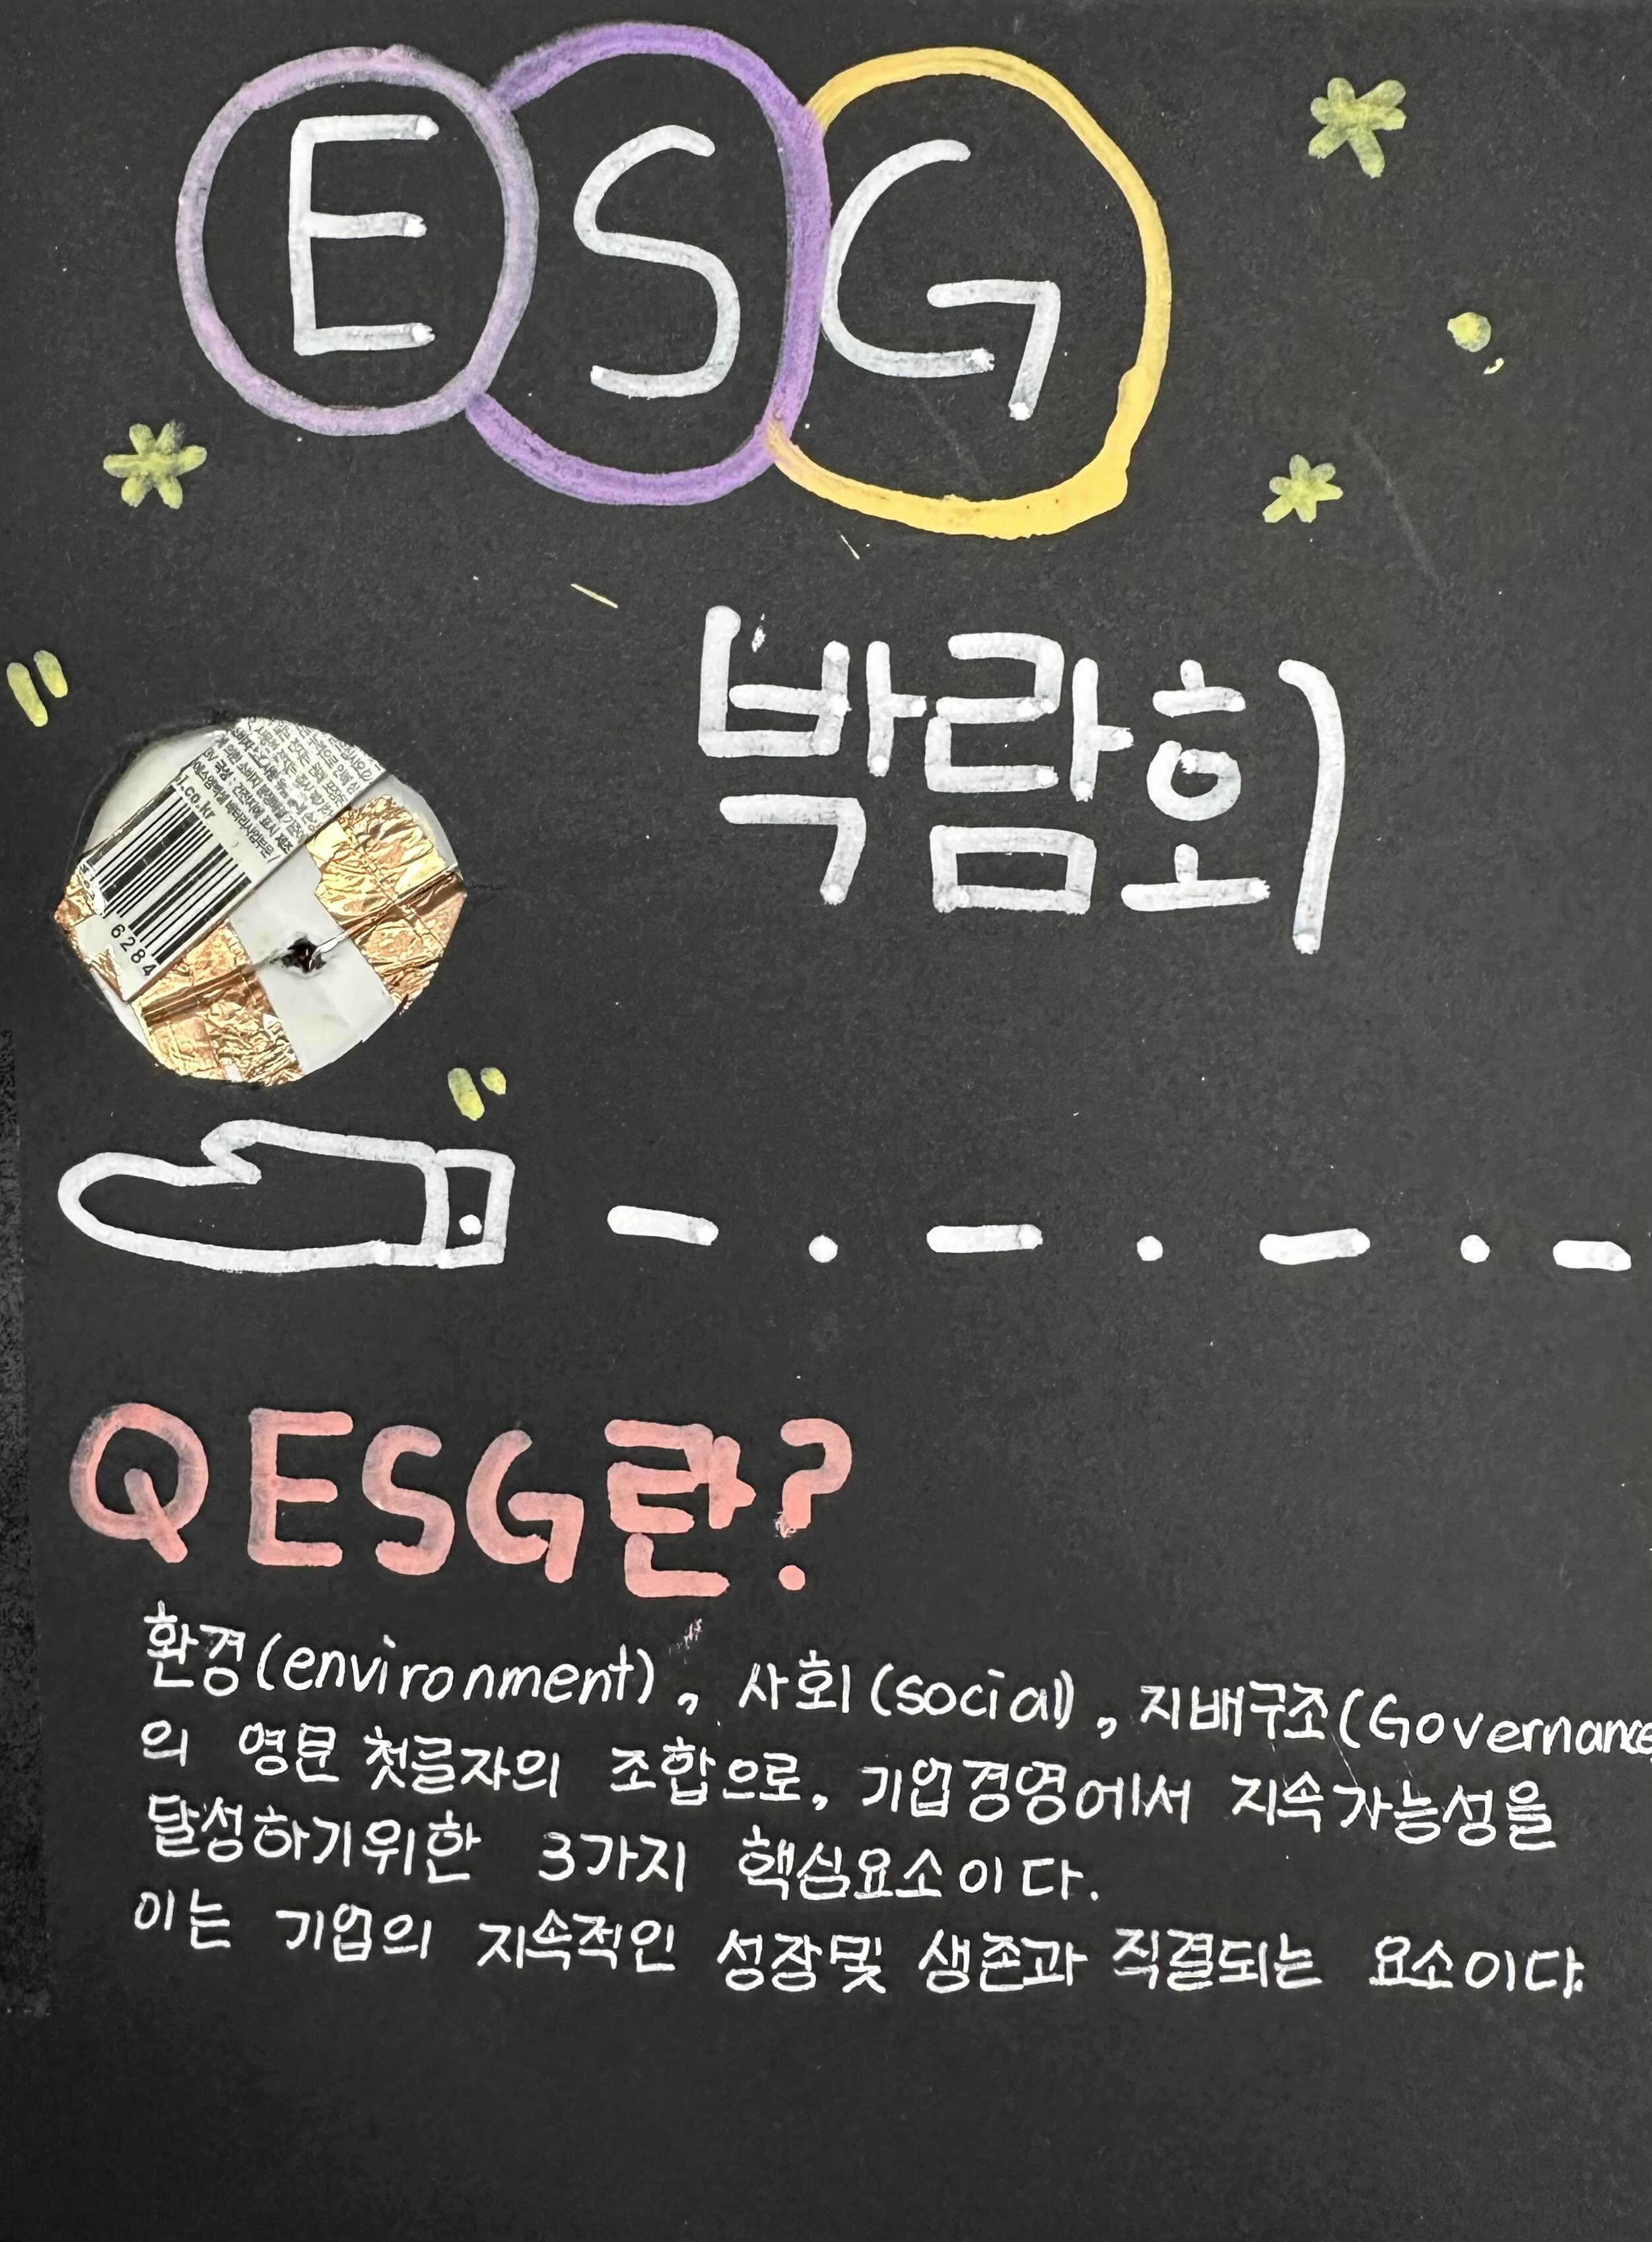 ESG
박람회
1.co.kr
6284
QESG란?
환경(environment), 사회(social), 지배구조(Governance
의 영문 첫글자의 조합으로, 기업경영에서 지속가능성을
달성하기위한 3가지 핵심요소이다.
이는 기업의 지속적인 성장및 생존과 직결되는 요소이다.